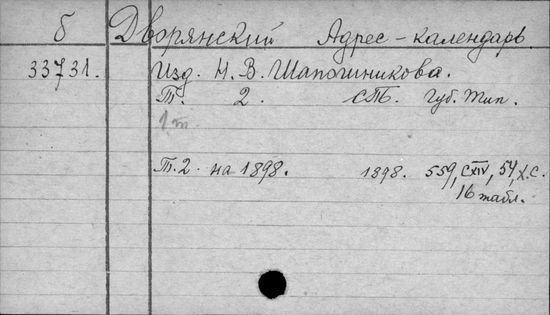 б Дворянский Адрес-календарь.
33731. Изд. Н. В. Шапошникова.
Т. 2. СПб. Губ. Тип.
1 т.
Т. 2. на 1898. 1898. 559, CXIV, 54, X. С.
16 табл.